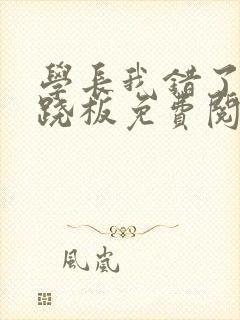 學長我錯了
跷板免費閱
風嵐